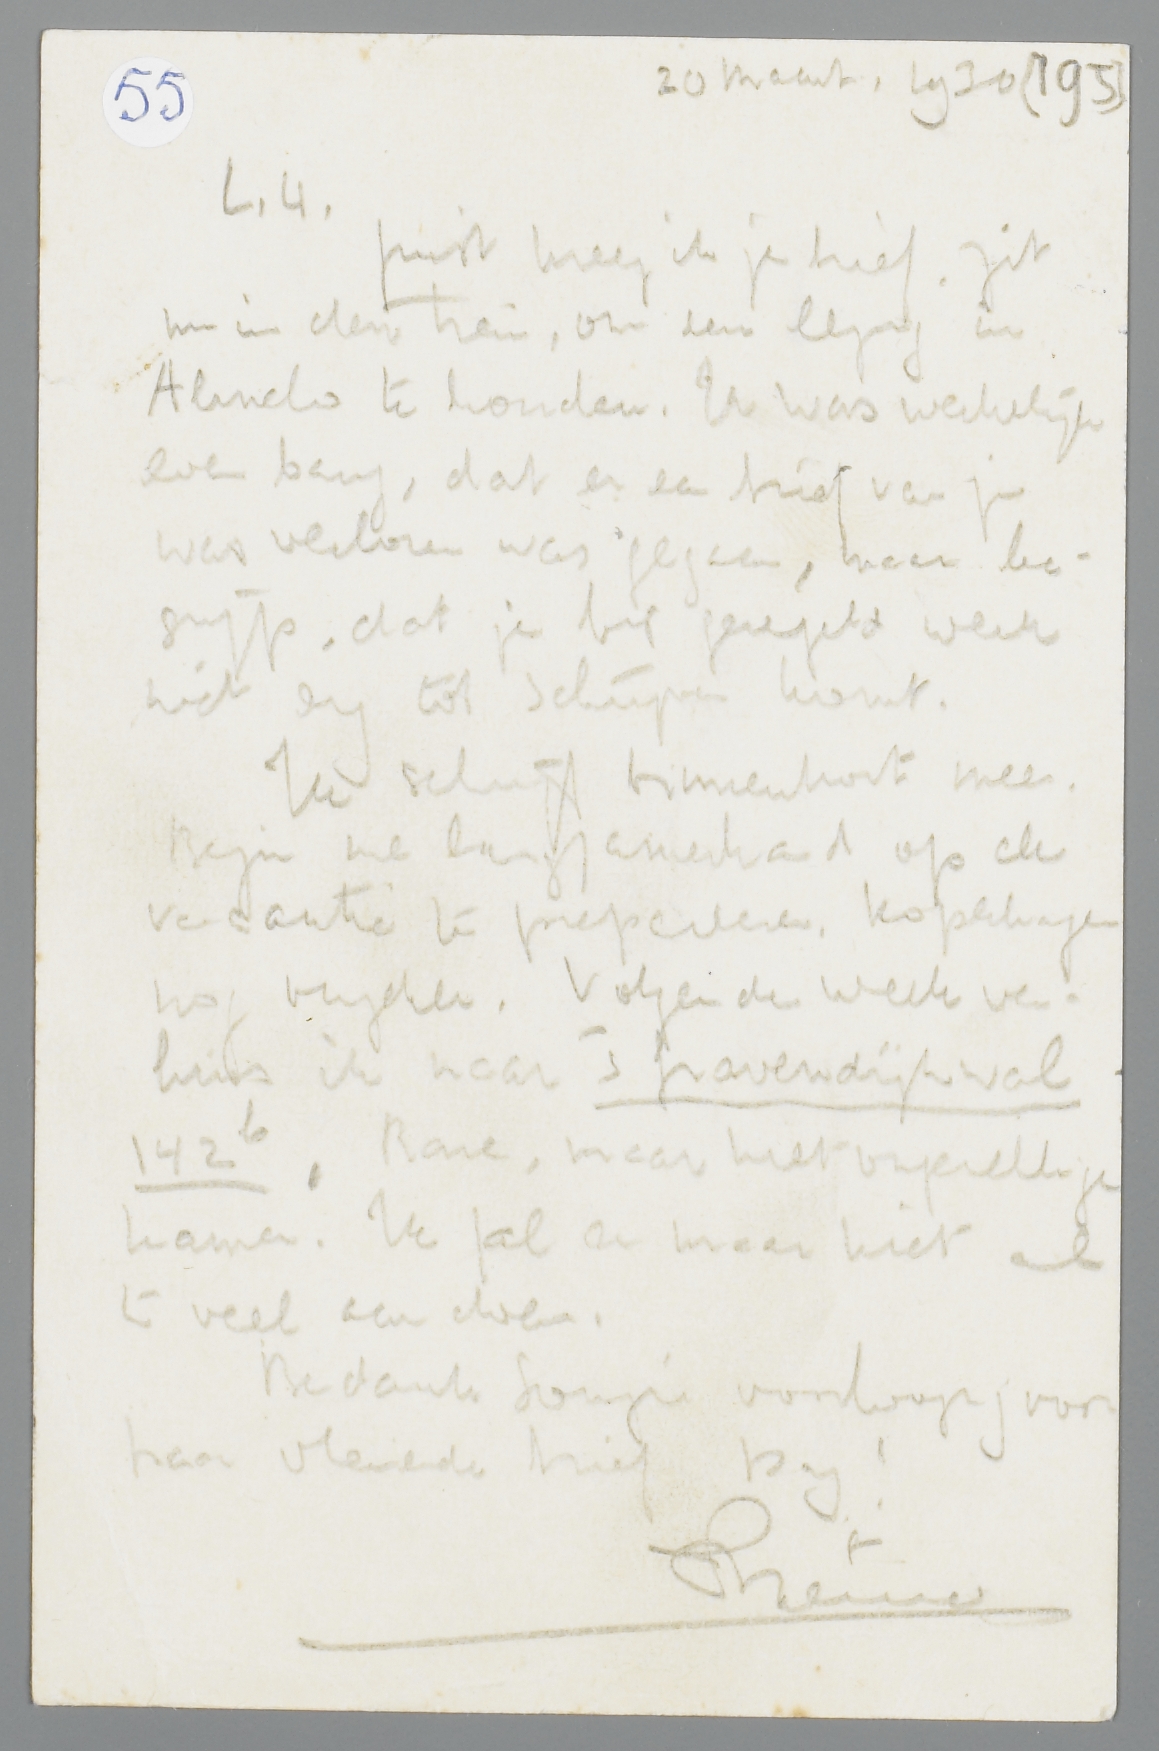 55
20 Maart. 1930 (195)
L. U.
juist kreeg ik je brief. Zit
nu in den trein, om een lezing in
Almelo te houden. Ik was werkelijk
even bang, dat er een brief van je
was verloren was gegaan, maar be-
grijp, dat je bij geregeld werk
niet erg tot schrijven komt.
Ik schrijf binnenkort meer.
Begin me langzamerhand op de
vacantie te prepareeren. Kopenhagen
nog onzeker. Volgende week ver-
huis ik naar 's Gravendijkwal
142b. Rare, maar niet ongezellige
kamer. Ik zal er maar niet al
te veel aan doen.
Bedank voorloopig voor
haar vleiende brief. Dag!